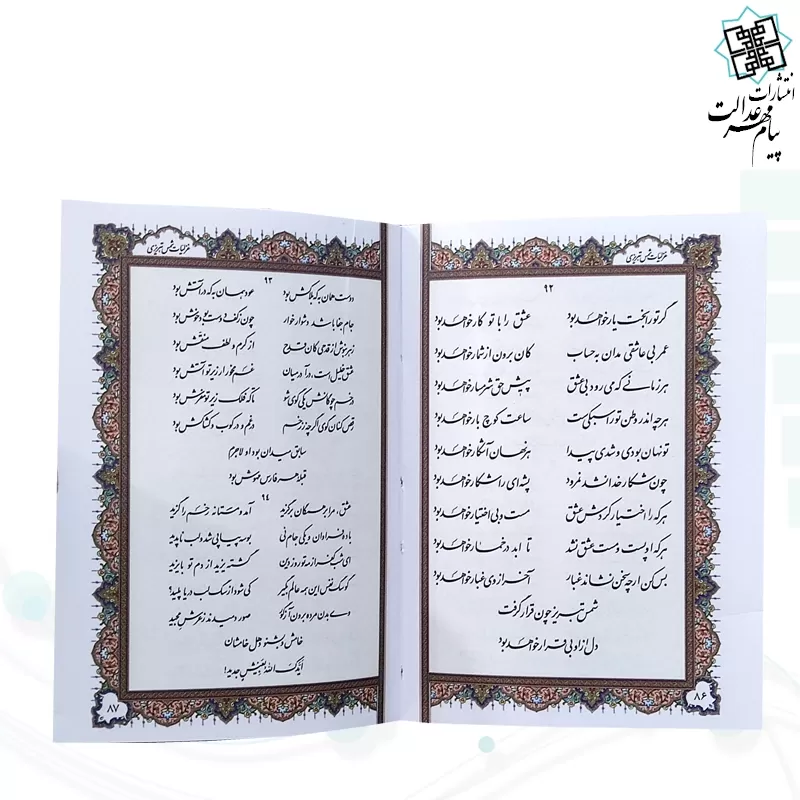 انتشارات
پیام مهر عدالت
غزلیات شمس تبریزی
۹۲
گر تو را بخت یار خواهد بود عشق را با تو کار خواهد بود
عمر بی عاشقی مدان به حساب کان برون از شمار خواهد بود
هر زمانی که می رود بی عشق پیش حق شرمسار خواهد بود
هر چه اندر وطن تو را سبکی ست ساعت کوچ بار خواهد بود
تو نهان بودی و شدی پیدا هر نهان آشکار خواهد بود
چون شکار خدا نشد نمرود پشه ای را شکار خواهد بود
هر که را اختیار کردش عشق مست و بی اختیار خواهد بود
هر که او پست و مست عشق نشد تا ابد در خمار خواهد بود
بس کن ار چه سخن نشاند غبار آخر از وی غبار خواهد بود
شمس تبریز چون قرار گرفت
دل از او بی قرار خواهد بود
۸۶
غزلیات شمس تبریزی
۹۳
دوست همان به که بلاکش بود عود همان به که در آتش بود
جام جفا باشد دشوار خوار چون ز کف دوست بود خوش بود
زهر بنوش از قدحی کان قدح از کرم و لطف منقش بود
عشق خلیل است، درآ در میان غم مخور ار زیر تو آتش بود
در خم چوگانش یکی گوی شو تا که فلک زیر تو مفرش بود
رقص کنان گوی اگر چه ز زخم در غم و در کوب و کشاکش بود
سابق میدان بود او لاجرم
قبله هر فارس مهوش بود
۹۴
عشق، مرا بر همگان برگزید آمد و مستانه رخم را گزید
باده فراوان و یکی جام نی بوسه پیاپی شد و لب ناپدید
ای شب کفر از مه تو روز دین گشته یزید از دم تو بایزید
گو سگ نفس این همه عالم بگیر کی شود از سگ لب دریا پلید؟
بدن مرده برون آر ز گور صور دمیدند ز عرش مجید
خامش و بشنو دهل خامشان
ایدک الله بعیش جدید!
۸۷